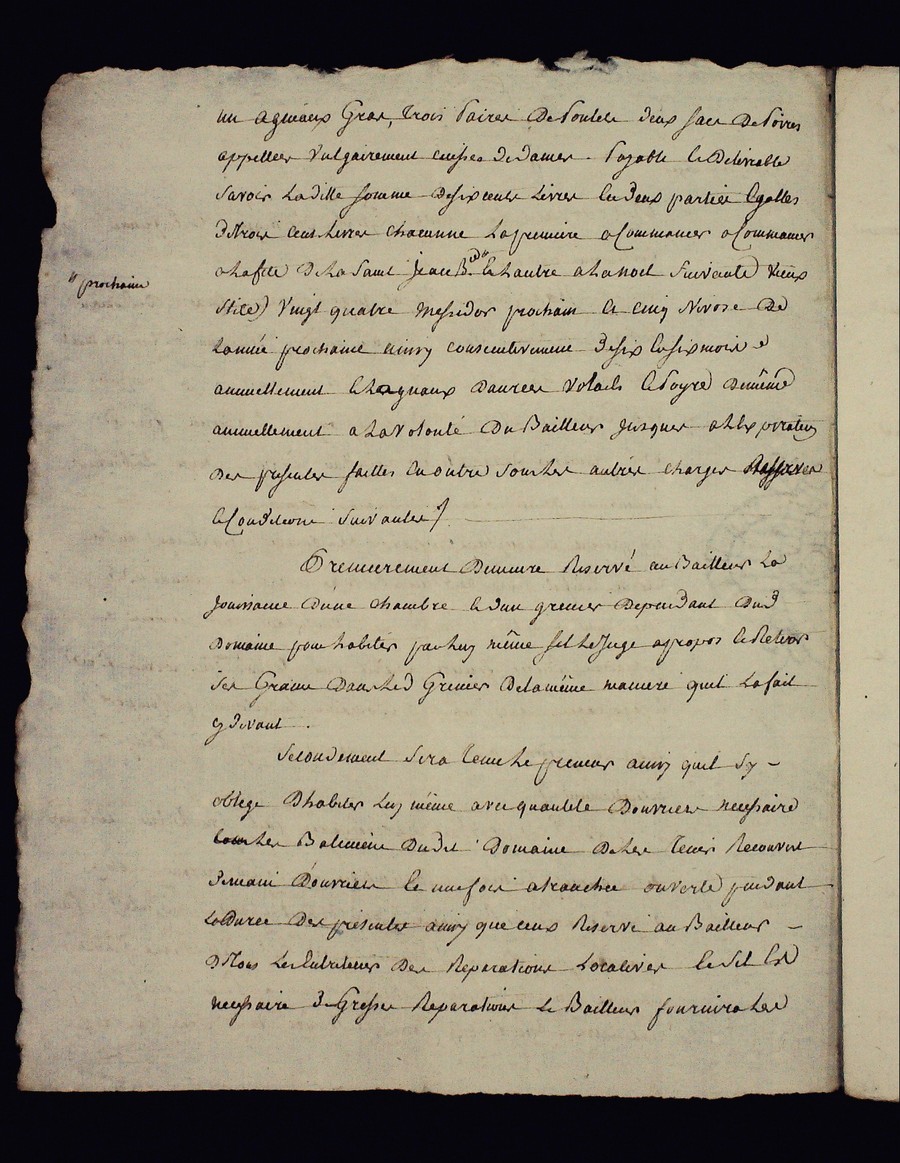 un agneaux Gras, trois Paires De Poulets deux sacs De Poires
appellees Vulgairement cuisses de dames. Payable & Delivrable
Savoir Laditte somme De six cents Livres en deux parties Egalles
de trois cent Livres chacunne La premiere a Commancer a Commancer
a La fete De La Saint Jean Bte & Lautre a La noel Suivante) vieux
" prochaine
Stile) Vingt quatre Messidor prochain & cinq Nivose De
Lannée prochaine ainsy consecutivement De six En six mois &
annuellement & Les agneaux Danrées Volails & Poyres De même
annuellement a La Volonté Du Bailleur Jusques a L'Expiration
Des presentes failles En outre Sous Les autres charges Reserves
& Conditions Suivantes)
Premierement Demeure Reservé au Bailleur La
Jouissance D'une chambre & d'un grenier Dependant Dud
Domaine pour habiter par Luy même sil Le Juge apropos & Retirer
Ses Grains Dans Led Grenier De La même maniere quil La fait
cy devant.
Secondement Sera tenu Le preneur ainsy quil Sy
oblige D'habiter Luy même avec quantité Douvriers necessaire
tous Les Batiments Dudit Domaine De Les tenir Recouvert
De main D'ouvriers & une fois a tranchée ouverte pendant
La Durée Des presentes ainsy que ceux Reservé au Bailleur
De tous Les Entretiens Des Reparations Locatives & Sil Est
necessaire De Grosses Reparations Le Bailleur fournira Les